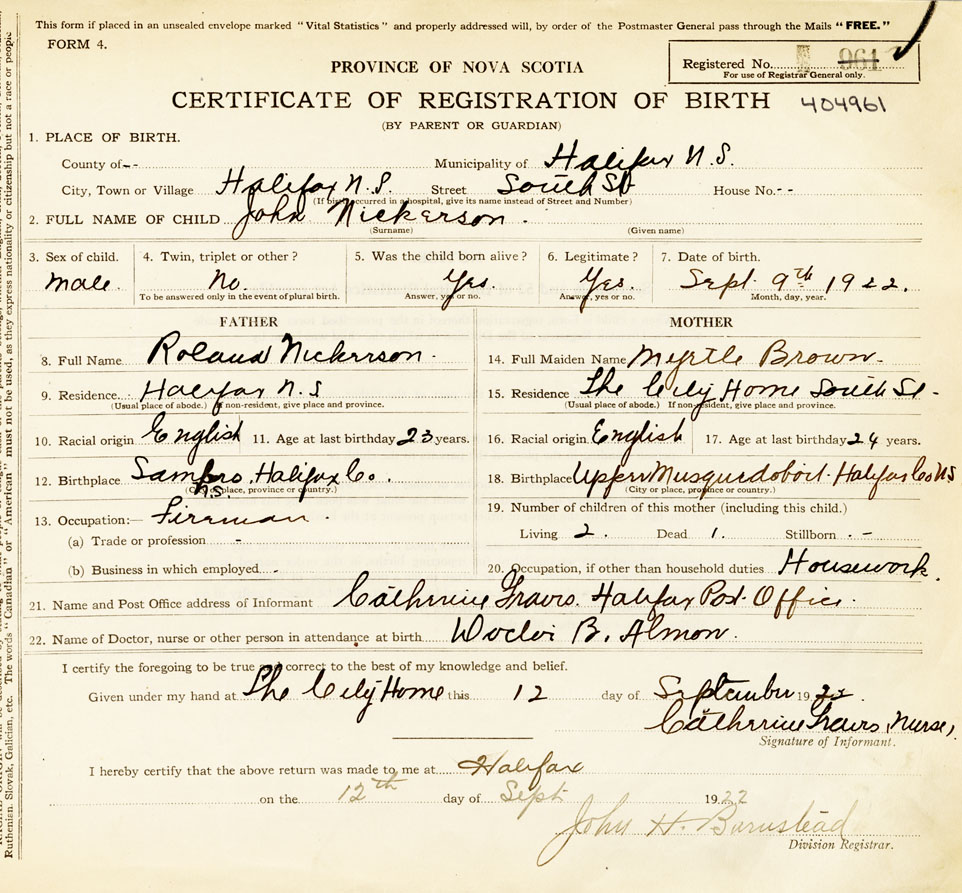 This form if placed in an unsealed envelope marked "Vital Statistics" and properly addressed will, by order of the Postmaster General pass through the Mails "FREE."
FORM 4.
Registered No. 961
For use of Registrar General only.
PROVINCE OF NOVA SCOTIA
CERTIFICATE OF REGISTRATION OF BIRTH 404961
(BY PARENT OR GUARDIAN)
1. PLACE OF BIRTH.
County of -- Municipality of Halifax N.S.
City, Town or Village Halifax N.S. Street South St House No. --
(If birth occurred in a hospital, give its name instead of Street and Number)
2. FULL NAME OF CHILD John Nickerson.
(Surname) (Given name)
3. Sex of child. 4. Twin, triplet or other? 5. Was the child born alive? 6. Legitimate? 7. Date of birth.
male. No. Yes. Yes. Sept. 9th 1922.
To be answered only in the event of plural birth. Answer, yes or no. Answer, yes or no. Month, day, year.
FATHER MOTHER
8. Full Name Roland Nickerson. 14. Full Maiden Name Myrtle Brown-
9. Residence Halifax N.S 15. Residence The City Home South St-
(Usual place of abode.) If non-resident, give place and province. (Usual place of abode.) If non-resident, give place and province.
10. Racial origin English 11. Age at last birthday 23 years. 16. Racial origin English 17. Age at last birthday 24 years.
12. Birthplace Sambro, Halifax Co. N.S. 18. Birthplace Upper Musquodoboit. Halifax Co NS
(City or place, province or country.) (City or place, province or country.)
13. Occupation:— Fireman. 19. Number of children of this mother (including this child.)
(a) Trade or profession - Living 2. Dead 1. Stillborn .-
(b) Business in which employed - 20. Occupation, if other than household duties Housework.
21. Name and Post Office address of Informant Catherine Travis. Halifax Post Office.
22. Name of Doctor, nurse or other person in attendance at birth B. Almon.
I certify the foregoing to be true and correct to the best of my knowledge and belief.
Given under my hand at The City Home this 12 day of September 1922.
Catherine Travis, Nurse,
Signature of Informant.
I hereby certify that the above return was made to me at Halifax
on the 12th day of Sept 1922
John H. Burnstead
Division Registrar.
Ruthenian, Slovak, Galician, etc. The words "Canadian" or "American" must not be used, as they express nationality or citizenship but not a race or people